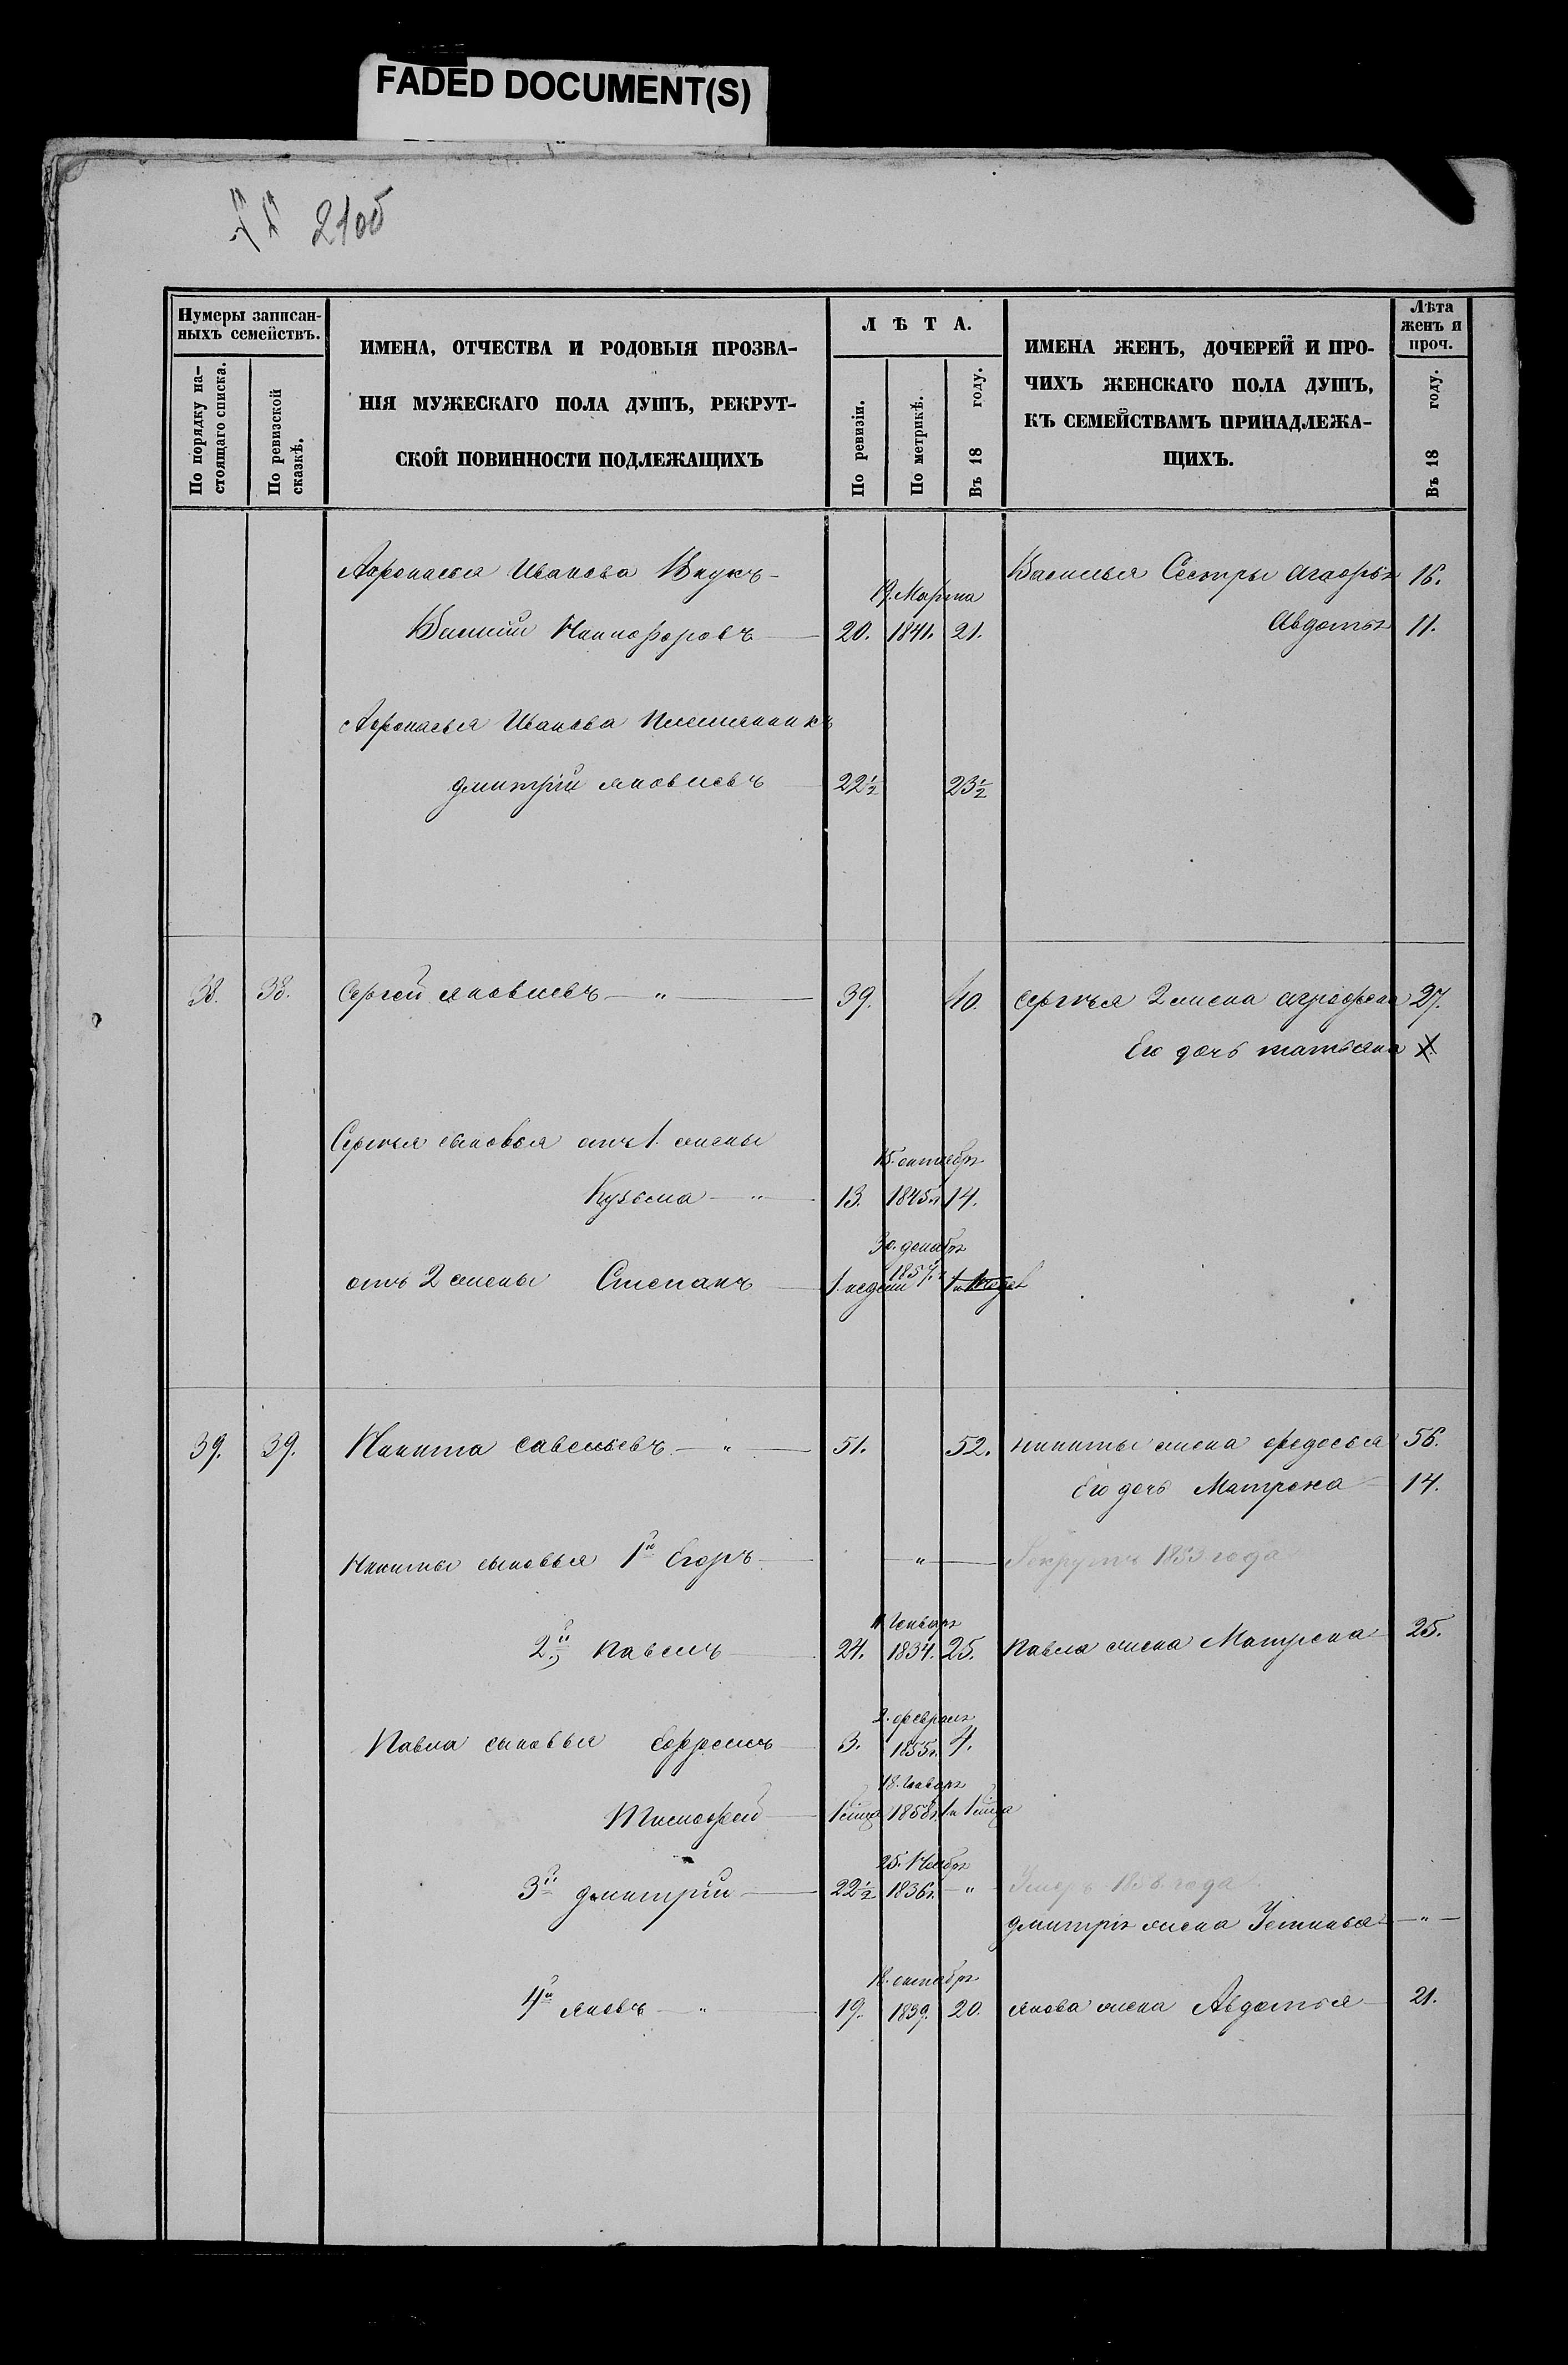 FADED DOCUMENT(S)
2100
Нумеры записан-
ныхъ семействъ.
По порядку на-
стоящаго списка.
По ревизской
сказкѣ.
ИМЕНА, ОТЧЕСТВА И РОДОВЫЯ ПРОЗВА-
НІЯ МУЖЕСКАГО ПОЛА ДУШЪ, РЕКРУТ-
СКОЙ ПОВИННОСТИ ПОДЛЕЖАЩИХЪ
ЛѢТА.
По ревизіи.
По метрикѣ.
Въ 18 году.
ИМЕНА ЖЕНЪ, ДОЧЕРЕЙ И ПРО-
ЧИХЪ ЖЕНСКАГО ПОЛА ДУШЪ,
КЪ СЕМЕЙСТВАМЪ ПРИНАДЛЕЖА-
ЩИХЪ.
Лѣта
женъ и
проч.
Въ 18 году.
Афонасья Иванова Внукъ - Василья Сестры 16.
19. Марта
Василий Никифоровъ 20. 1841. 21. Авдотья 11.
Афонасья Иванова Племянникъ
дмитрій яковлевъ 22½ 23½
38. 38. Сергей яковлевъ — " — 39. 40. Сергѣя 2 жена аграфена 27.
Его дочь татьяна
Сергѣя сыновья отъ 1. жены
15. октября
Кузьма — " 13. 1845 г. 14.
30. декабря
отъ 2 жены Степанъ 1 недели 1857. г.
39. 39. Никита савельевъ — " — 51. 52. никиты жена федосья 56.
Его дочь Матрена 14.
Никиты сыновья 1й Егоръ — " — Рекрутъ 1853 года
Генваря
2й павелъ 24. 1834. 25. павла жена Матрена 25.
2. февраля
Павла сыновья Ефремъ 3. 1855 г. 4.
18. Генваря
Тимофей 1858 г.
25. Ноября
3й дмитрій 22½ 1836 г. — " года
дмитрія жена Устинья — " —
18. октября
4й яковъ — " 19. 1839. 20. якова жена Авдотья 21.